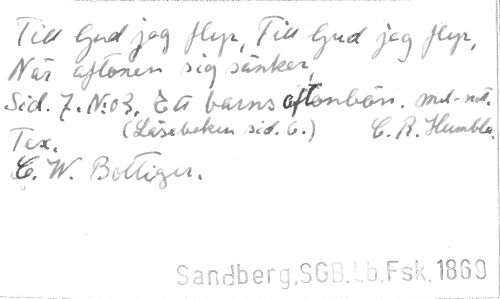 Till Gud jag flyr, Till Gud jag flyr,
När aftonen sig sänker,
Sid. 7. N:o 3, Ett barns aftonbön. mel-not.
(Läseboken sid. 6.) C. R. Humbla.
Tex.
C. W. Bottiger.
Sandberg,SGB.Lb.Fsk.1869